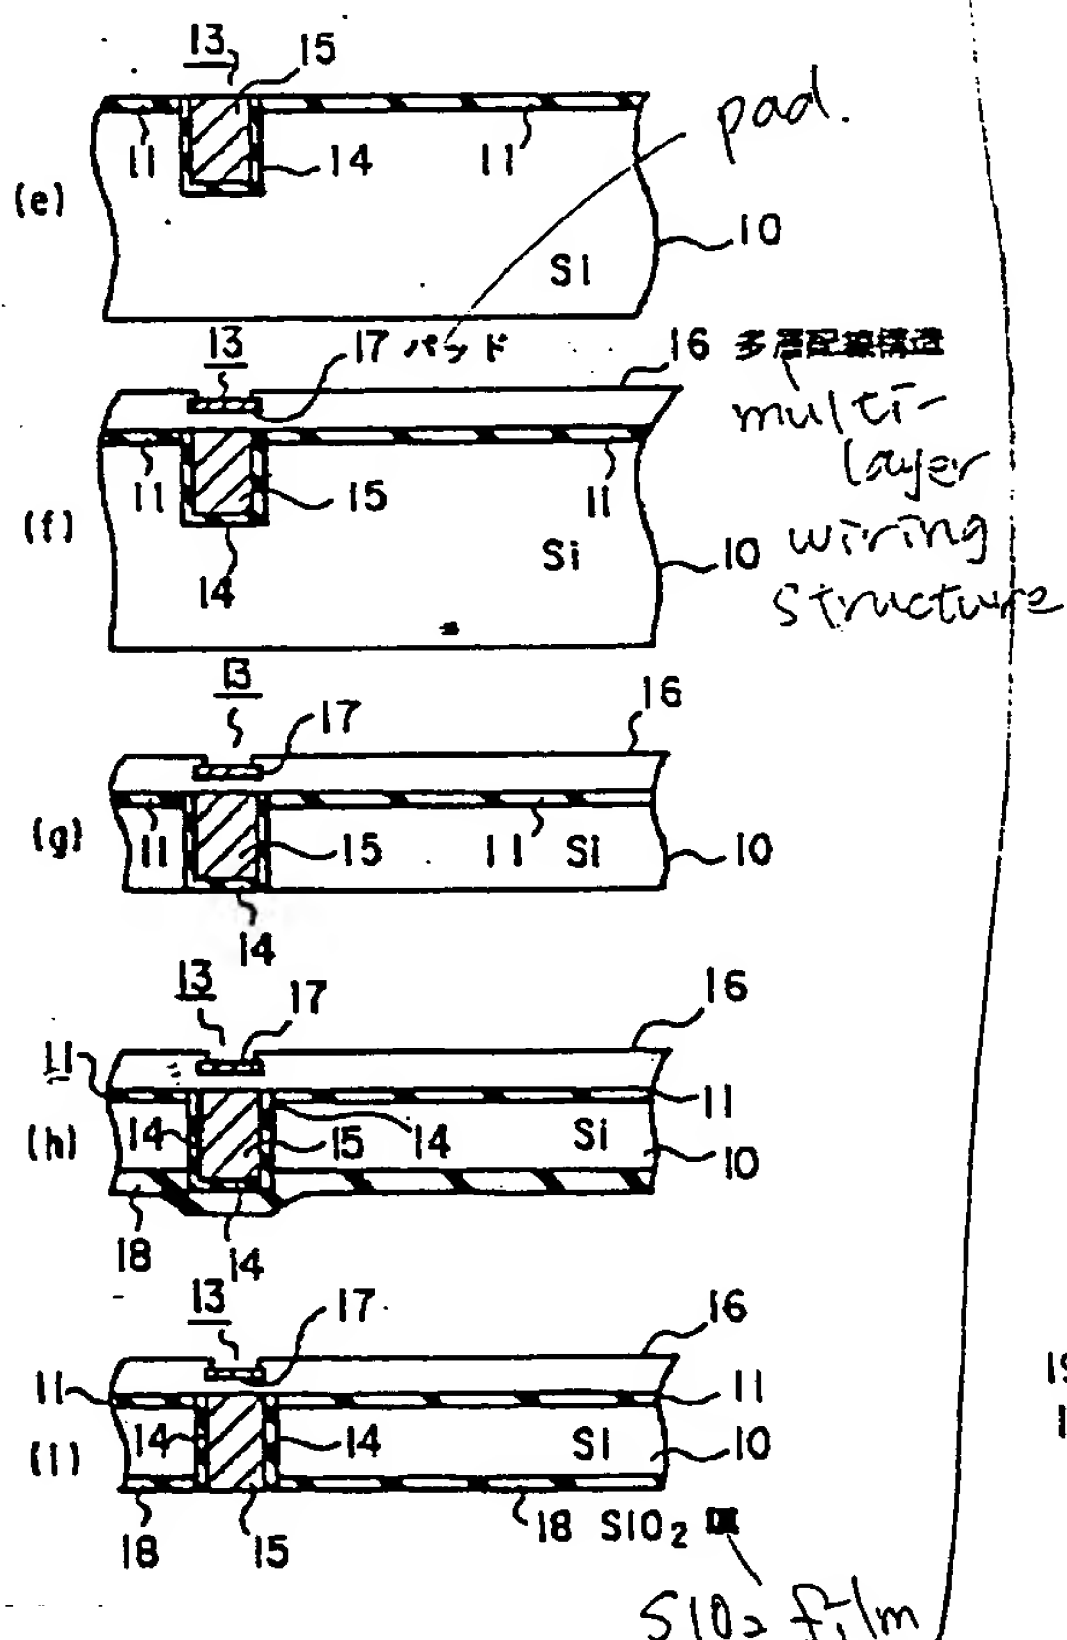 13
15
pad.
11
14
11
(e)
10
Si
13
17 パッド
16 多層配線構造
multi-
layer
wiring
structure
11
15
11
(f)
Si
10
14
13
17
16
(g)
11
15
11
Si
10
14
13
17
16
11
11
(h)
14
15
14
Si
10
18
14
13
17
16
11
11
14
14
Si
10
(i)
18
15
18 SiO2 膜
SiO2 film